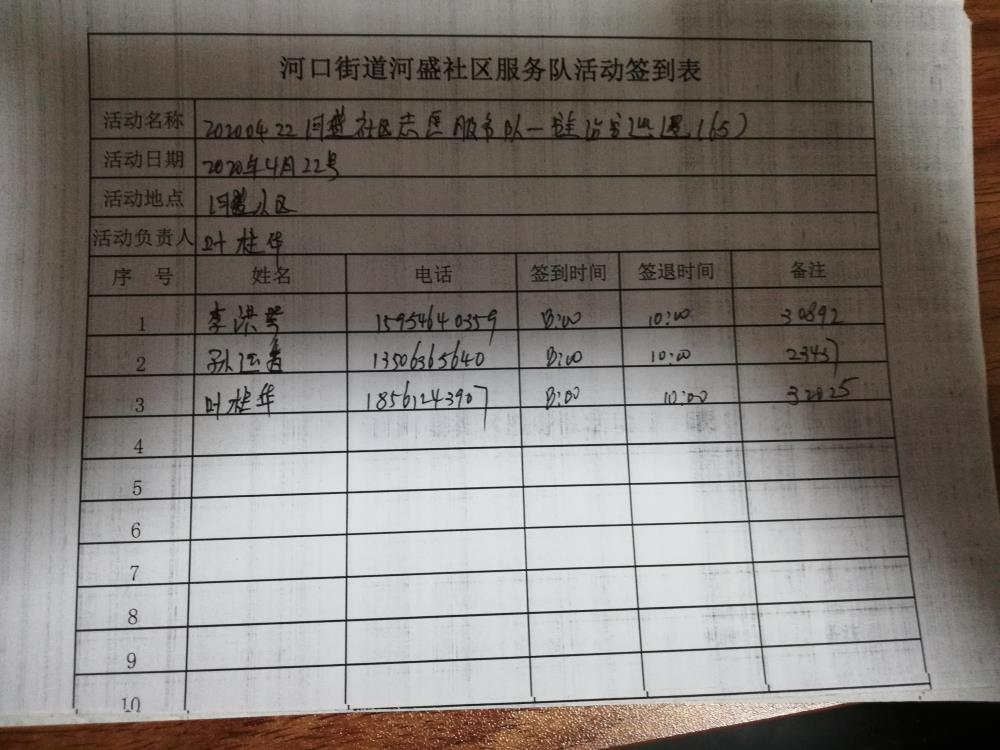 河口街道河盛社区服务队活动签到表
活动名称 20200422河盛社区志愿服务队一 治安巡逻(65)
活动日期 2020年4月22号
活动地点 河盛小区
活动负责人 叶桂华
序 号 姓名 电话 签到时间 签退时间 备注
1 李洪 15954640359 8:00 10:00 30892
2 孙 13506365640 8:00 10:00 23437
3 叶桂华 18561243907 8:00 10:00 32825
4
5
6
7
8
9
10